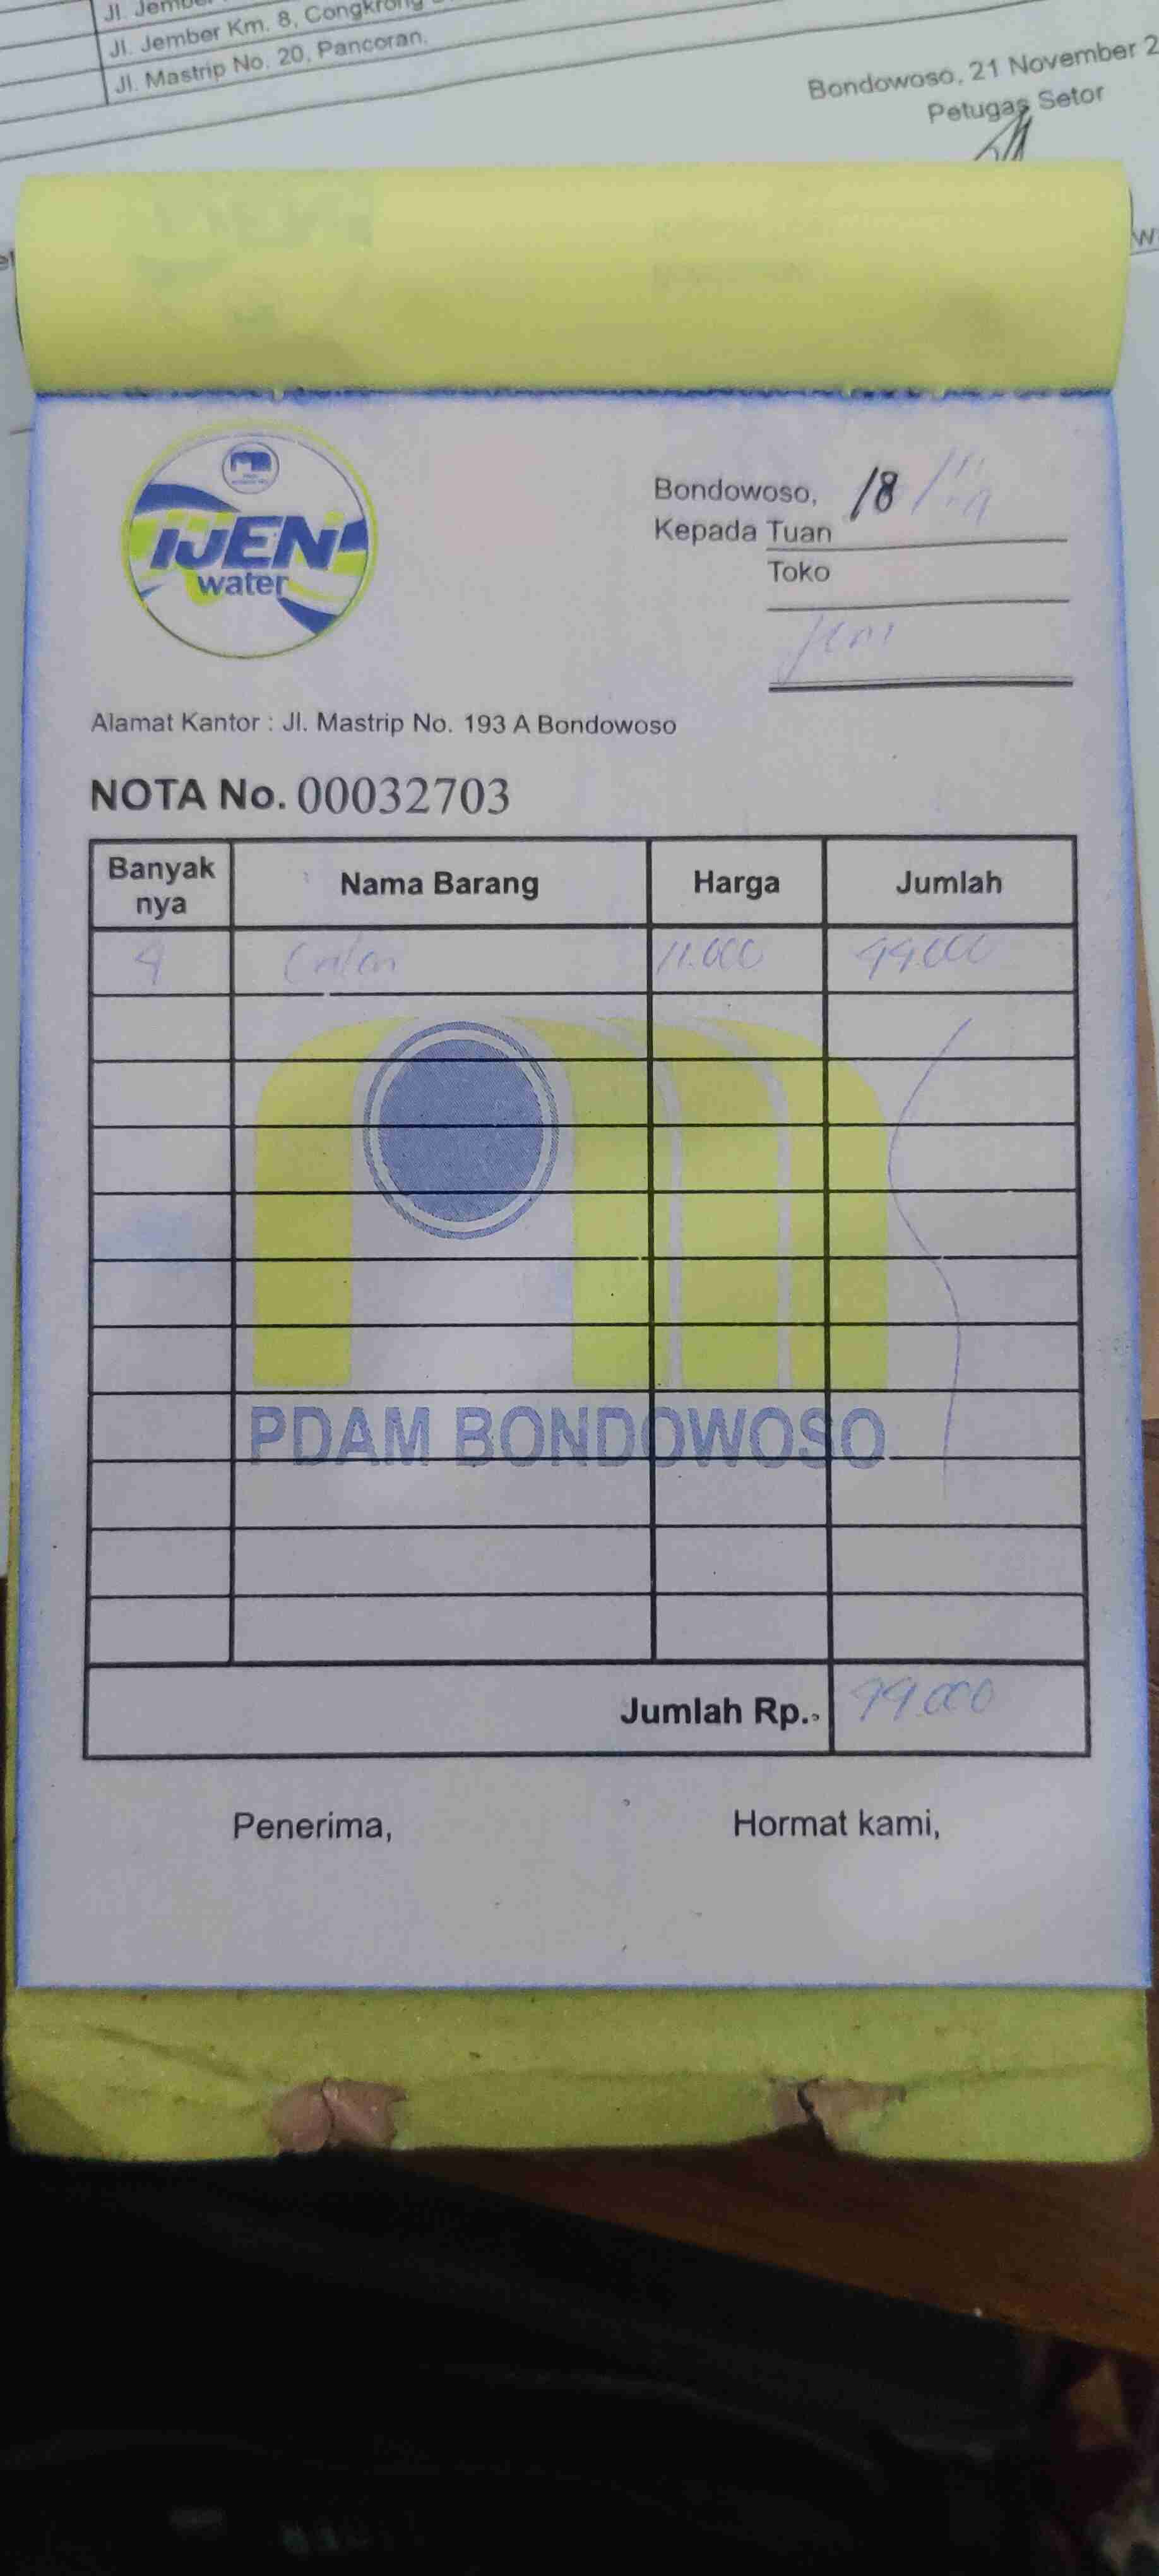 Jl. Jember Km. 8, Congkrong
Jl. Mastrip No. 20, Pancoran.
Bondowoso, 21 November 2
Petugas Setor
IJEN
water
Bondowoso, 18
Kepada Tuan
Toko
Alamat Kantor : Jl. Mastrip No. 193 A Bondowoso
NOTA No. 00032703
Banyak nya Nama Barang Harga Jumlah
11.000
PDAM BONDOWOSO
Jumlah Rp.
Penerima, Hormat kami,